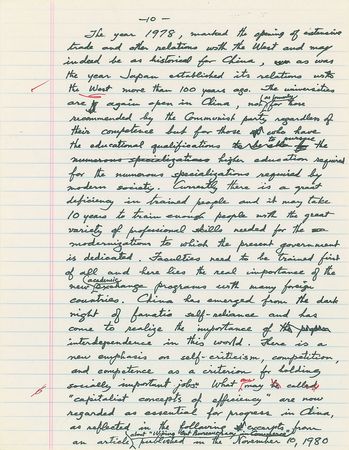 - 10 -
The year 1978, marked the opening of extensive
trade and other relations with the West and may
indeed be as historical for China, as was
the year Japan established its relations with
the West more than 100 years ago. The universities
are again open in China, not (as formerly) for those
recommended by the Communist party regardless of
their competence but for those who have
the educational qualifications to pursue the
numerous specializations higher education required
for the numerous specializations required by
modern society. Currently there is a great
deficiency in trained people and it may take
10 years to train enough people with the great
variety of professional skills needed for the
modernizations to which the present government
is dedicated. Faculties need to be trained first
of all and here lies the real importance of the
new (academic) exchange programs with many foreign
countries. China has emerged from the dark
night of fanatic self-reliance and has
come to realize the importance of the
interdependence in this world. There is a
new emphasis on self-criticism, competition,
and competence as a criterion for holding
socially important jobs. What one may called
"capitalist concepts of efficiency" are now
regarded as essential for progress in China,
as reflected in the following excerpts from
an article about "Wiping Out Bureaucracy and Incompetence" published in the November 10, 1980